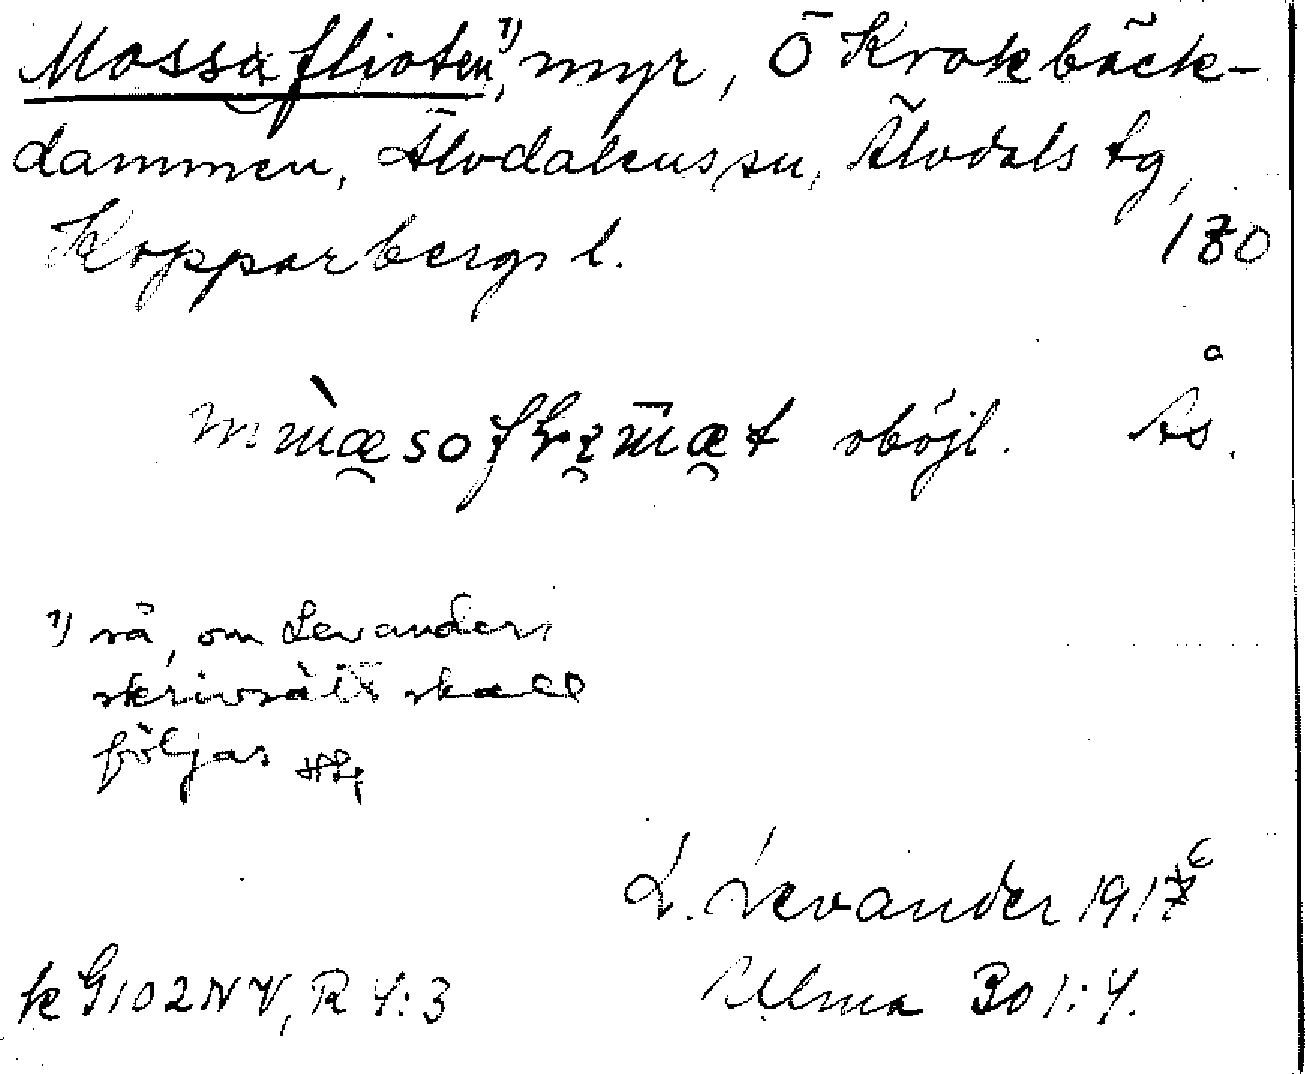 Mossaflioten¹⁾, myr, Ö Krokbäck-
dammen, Älvdalens sn, Älvdals tg,
Kopparbergs l. 180
oböjl. Ås.
¹⁾ så, om Levanders
skrivsätt skall
följas
L. Levander 1916
k G 102 NV, R 4:3 Ulma 301:4.